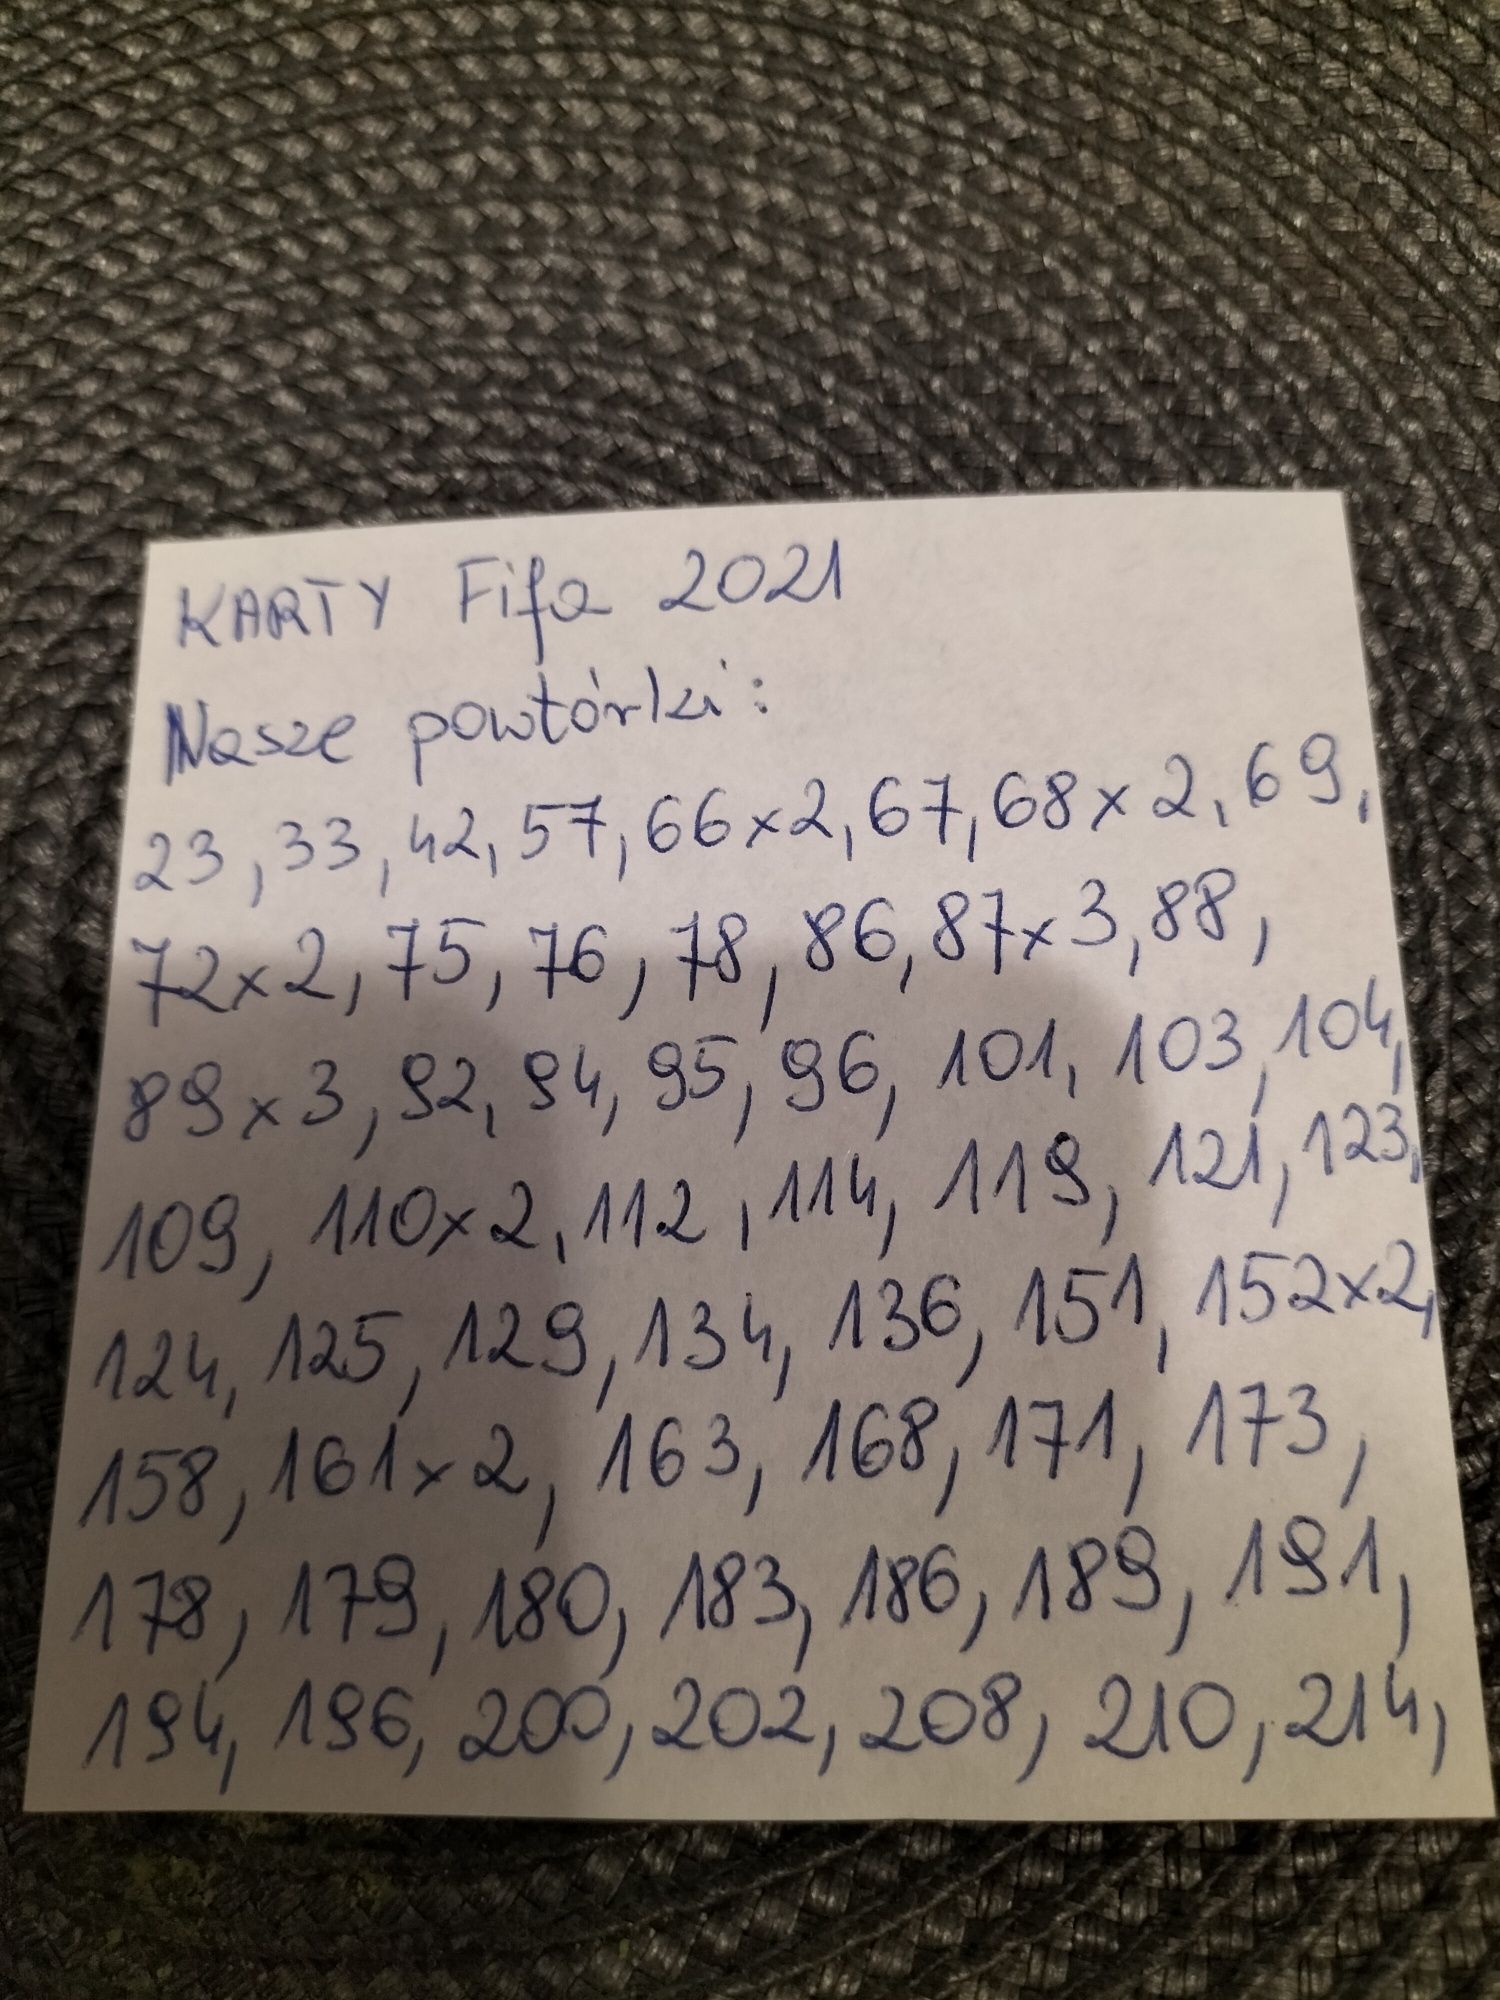 KARTY Fifa 2021
Nasze powtórki:
23, 33, 42, 57, 66x2, 67, 68x2, 69,
72x2, 75, 76, 78, 86, 87x3, 88,
89x3, 92, 94, 95, 96, 101, 103, 104,
109, 110x2, 112, 114, 119, 121, 123,
124, 125, 129, 134, 136, 151, 152x2,
158, 161x2, 163, 168, 171, 173,
178, 179, 180, 183, 186, 189, 191,
194, 196, 200, 202, 208, 210, 214,